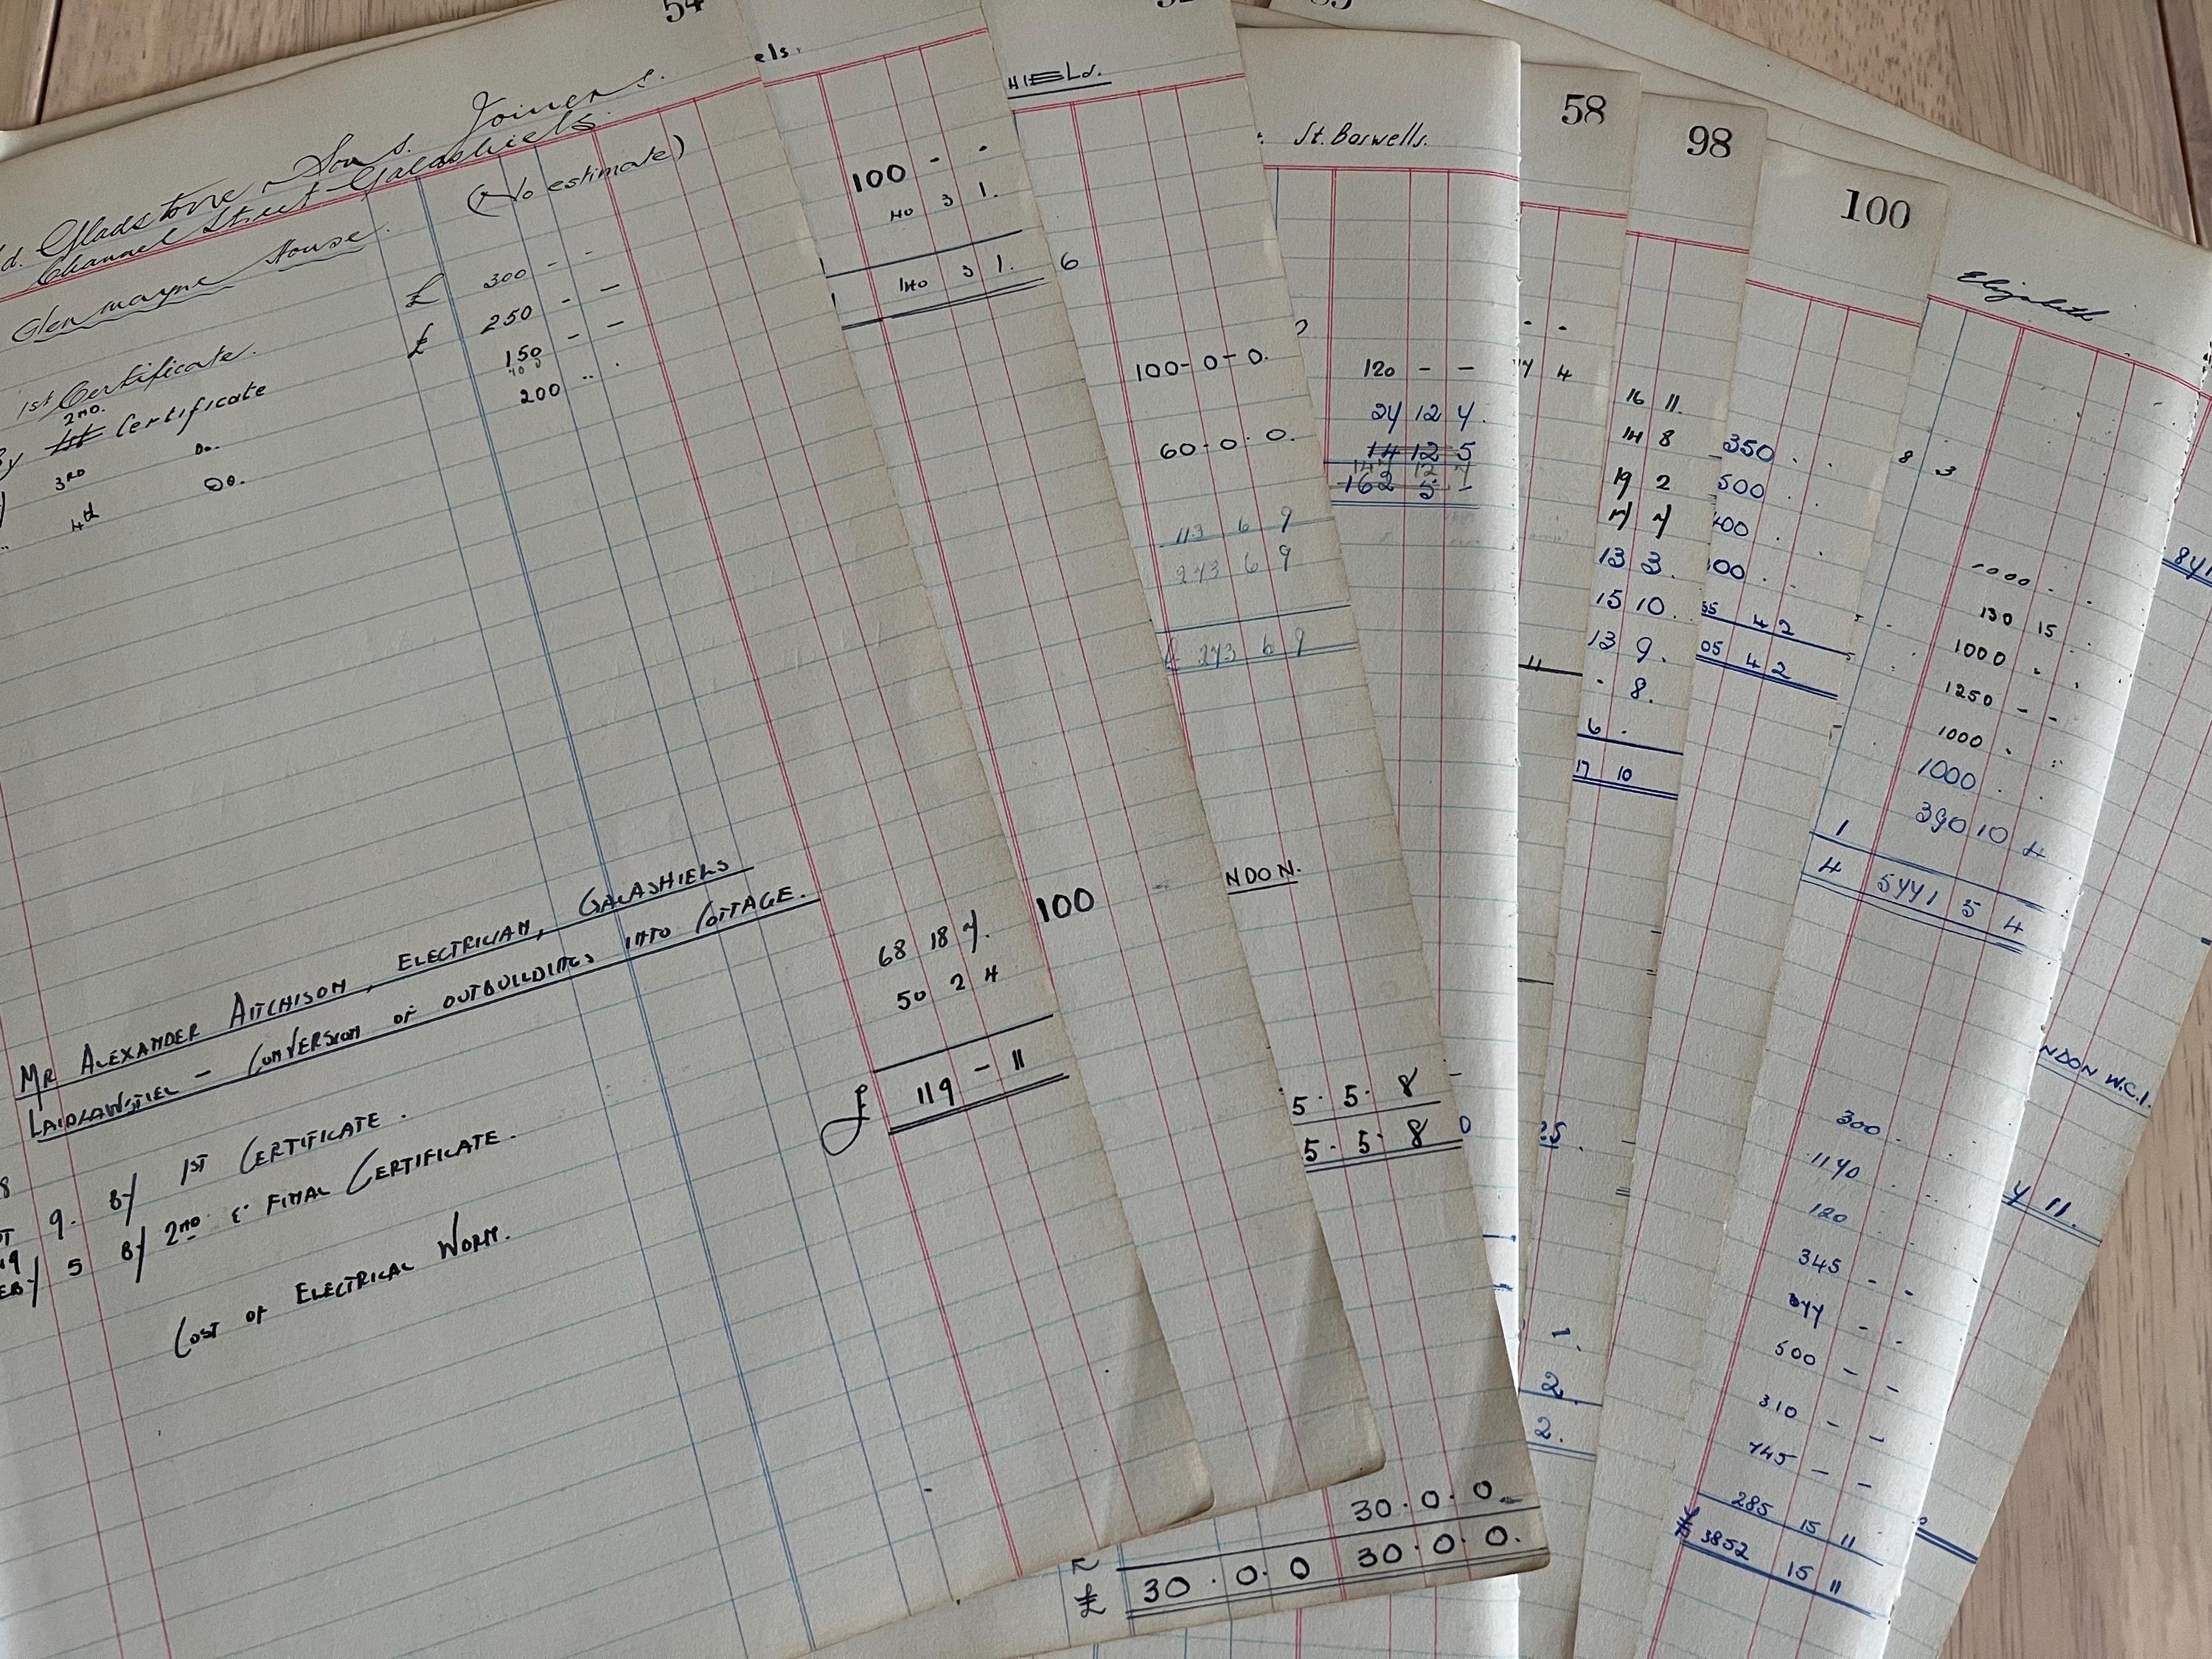 54
Gladstone Sons. Joiners.
Channel Street Galashiels.
Glenmayne House.
(No estimate)
1st Certificate. £ 300 - -
2ND.
By 1st Certificate £ 250 - -
3RD Do. 150 - -
4th DO. 200
MR ALEXANDER AITCHISON, ELECTRICIAN, GALASHIELS
LAIDLAWSTIEL - CONVERSION OF OUTBUILDINGS INTO COTTAGE.
9. BY 1ST CERTIFICATE. 68 18 7.
5 BY 2ND & FINAL CERTIFICATE. 50 2 4
COST OF ELECTRICAL WORK. £ 119 - 11
els.
100 - -
40 3 1.
140 3 1.
100
HIELD.
6
100-0-0.
60-0-0.
113 6 9
273 6 9
£ 273 6 9
NDON.
5. 5. 8
5. 5. 8
30.0.0
£ 30.0.0 30.0.0.
St. Boswells.
120 - -
27 12 7.
14 12 5
147 12 7
162 5 -
0
58
7 4
11
25.
2.
2.
98
16 11.
14 8
19 2
7 7
13 3.
15 10.
13 9.
- 8.
6 .
17 10
100
350
500
400
00
55 4 2
05 4 2
Elizabeth
8 3
1000
130 15
1000
1250 - -
1000
1000
390 10 4
1
4 5771 5 4
300
1170
120
345 - -
377 - -
500 - -
310 - -
745 - -
285 15 11
£ 3852 15 11
871
NDON W.C.1.
7 11.